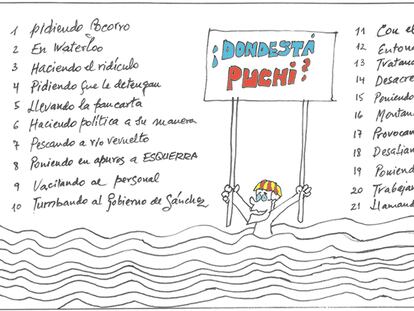 1 pidiendo Socorro
2 En Waterloo
3 Haciendo el ridículo
4 Pidiendo que le detengan
5 Llevando la pancarta
6 Haciendo política a su manera
7 Pescando a río revuelto
8 Poniendo en apuros a ESQUERRA
9 Vacilando al personal
10 Tumbando al Gobierno de Sánchez
¡DONDESTÁ
PUCHI?
11 Con el
12 Entom
13 Tratan
14 Desacre
15 Poniendo
16 Montan
17 Provocan
18 Desafian
19 Poniend
20 Trabaja
21 Llamand